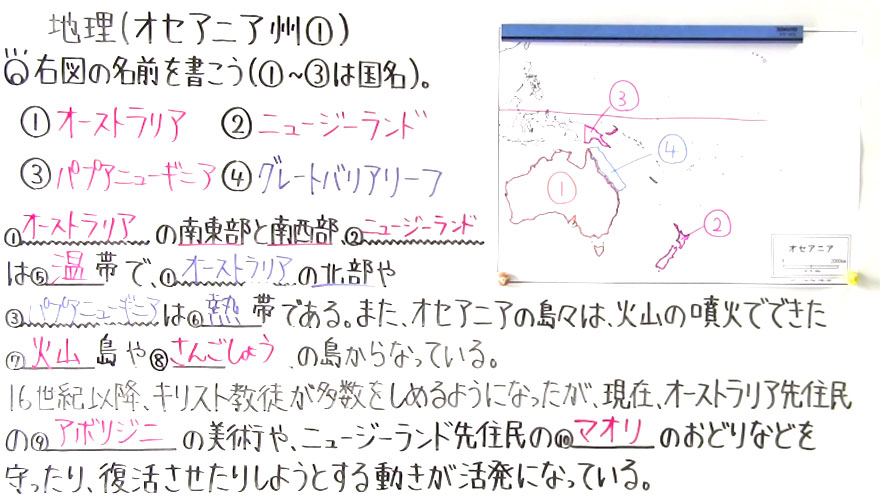 地理(オセアニア州①)
右図の名前を書こう(①~③は国名)。
①オーストラリア ②ニュージーランド
③パプアニューギニア ④グレートバリアリーフ
①オーストラリアの南東部と南西部、②ニュージーランド
は⑤温帯で、①オーストラリアの北部や
③パプアニューギニアは⑥熱帯である。また、オセアニアの島々は、火山の噴火でできた
⑦火山島や⑧さんごしょうの島からなっている。
16世紀以降、キリスト教徒が多数をしめるようになったが、現在、オーストラリア先住民
の⑨アボリジニの美術や、ニュージーランド先住民の⑩マオリのおどりなどを
守ったり、復活させたりしようとする動きが活発になっている。
③
④
①
②
オセアニア